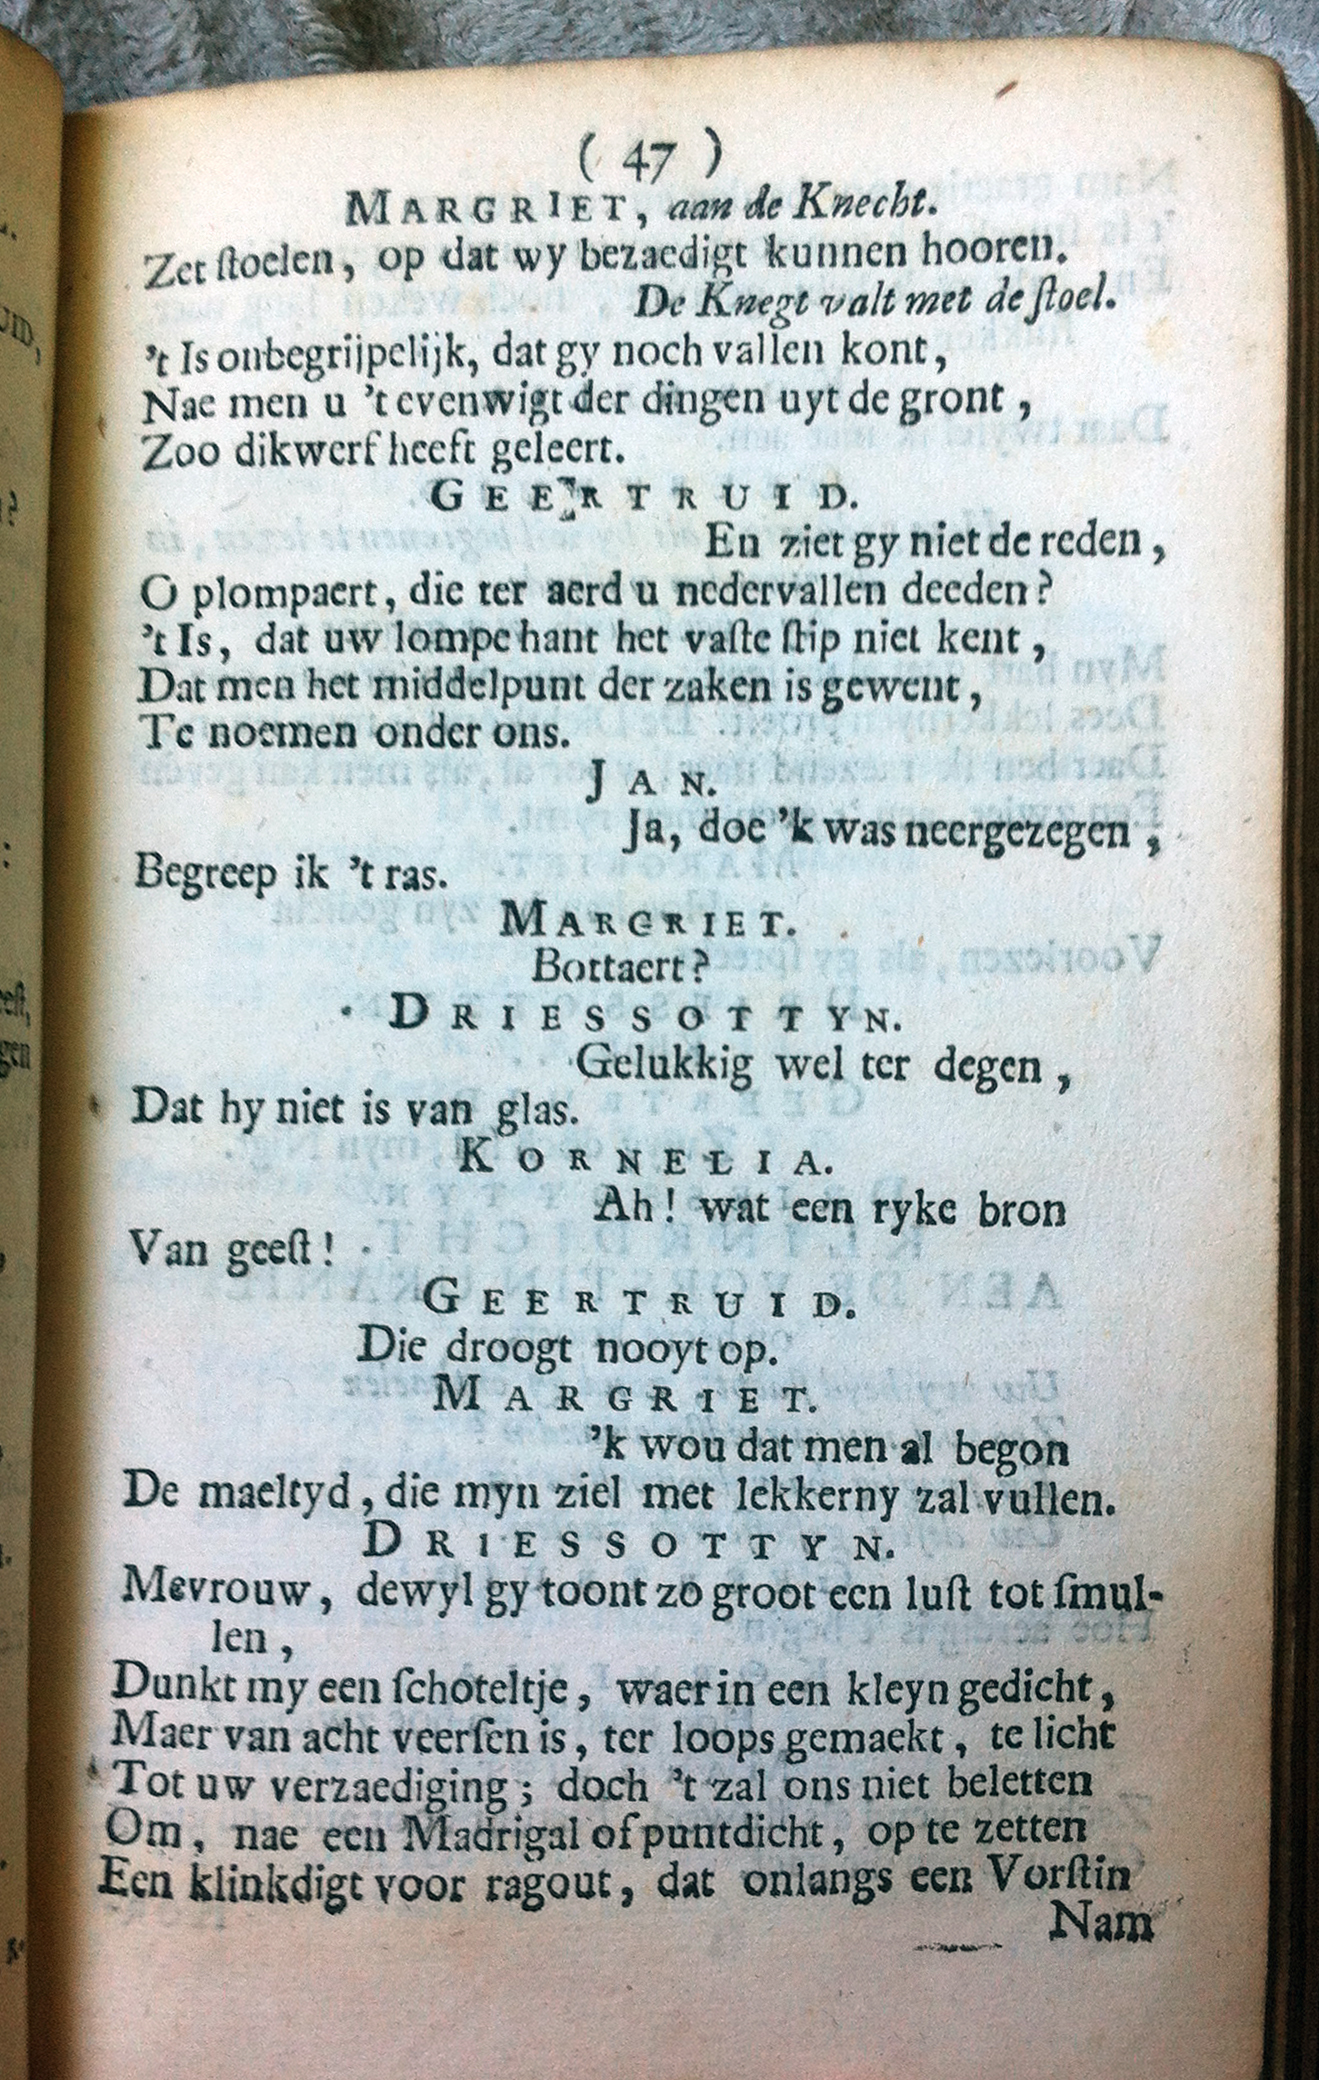 ( 47 )
MARGRIET, aan de Knecht.
Zet ſtoelen, op dat wy bezaedigt kunnen hooren.
De Knegt valt met de ſtoel.
't Is onbegrijpelijk, dat gy noch vallen kont,
Nae men u 't evenwigt der dingen uyt de gront,
Zoo dikwerf heeft geleert.
GEERTRUID.
En ziet gy niet de reden,
O plompaert, die ter aerd u nedervallen deeden?
't Is, dat uw lompe hant het vaſte ſtip niet kent,
Dat men het middelpunt der zaken is gewent,
Te noemen onder ons.
JAN.
Ja, doe 'k was neergezegen,
Begreep ik 't ras.
MARGRIET.
Bottaert?
DRIESSOTTYN.
Gelukkig wel ter degen,
Dat hy niet is van glas.
KORNELIA.
Ah! wat een ryke bron
Van geeſt!
GEERTRUID.
Die droogt nooyt op.
MARGRIET.
'k wou dat men al begon
De maeltyd, die myn ziel met lekkerny zal vullen.
DRIESSOTTYN.
Mevrouw, dewyl gy toont zo groot een luſt tot ſmul-
len,
Dunkt my een ſchoteltje, waer in een kleyn gedicht,
Maer van acht veerſen is, ter loops gemaekt, te licht
Tot uw verzaediging; doch 't zal ons niet beletten
Om, nae een Madrigal of puntdicht, op te zetten
Een klinkdigt voor ragout, dat onlangs een Vorſtin
Nam